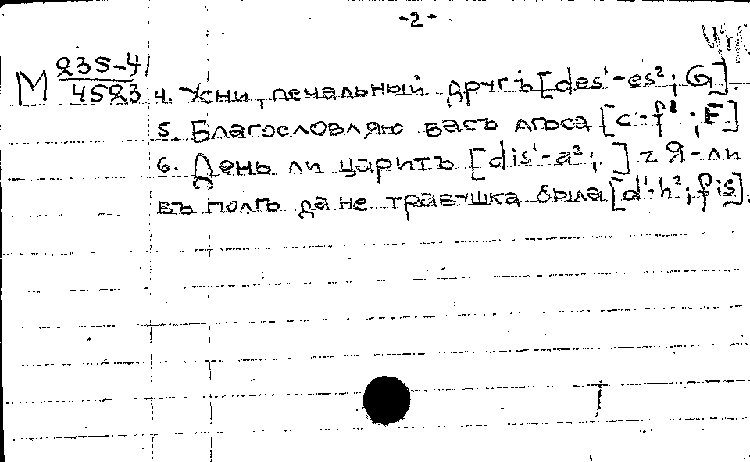 -2-
M 235-4
4583 4. Усни, печальный другъ [des¹-es²; G].
5. Благословляю васъ лѣса [c¹-f²; F]
6. День ли царитъ [dis¹-a²; ] 7. Я-ли
въ полѣ да не травушка была [d¹-h²; fis].